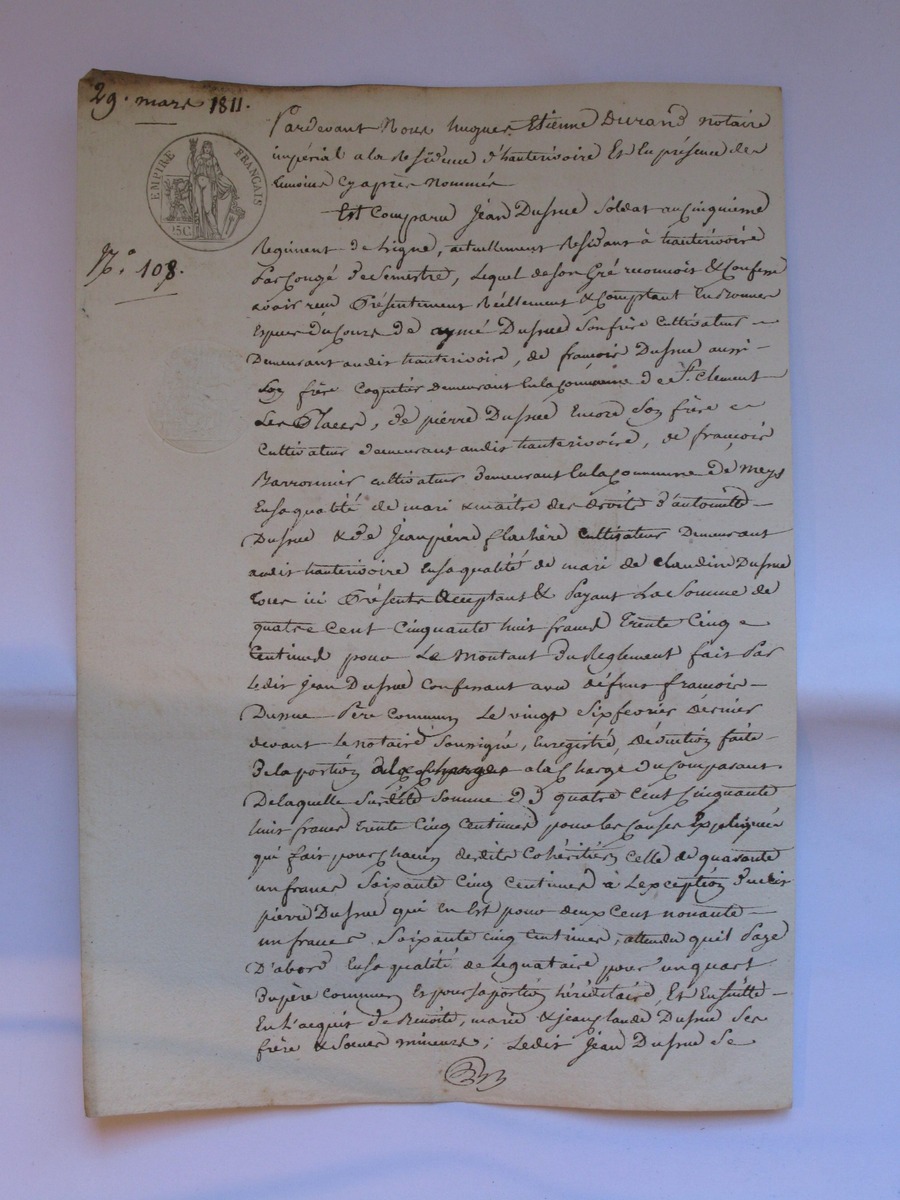 29. mars 1811.
EMPIRE FRANÇAIS
15C
N.° 108.
Pardevant Nous hugues Etienne Durand notaire
impérial a la residence d'hauterivoire Et En présence des
temoins Cyaprès Nommés
Est Comparu Jean Dussue Soldat au Cinquieme
Regiment de Ligne, actuellement Residant à hauterivoire
Par Congé de Semestre, Lequel de son Gré reconnoit & Confesse
avoir reçu Présentement Réellement & Comptant En Bonnes
Especes du Cours de aymé Dussue Son frère Cultivateur
Demeurant audit hauterivoire, de françois Dussue aussi
Son frère Coquetier demeurant En la Commune de St. Clement
Les Places, de pierre Dussue Encore Son frère
Cultivateur demeurant audit hauterivoire, de françois
Barronnier cultivateur demeurant En la Commune de Meys
En sa qualité de mari & maitre des droits d'antoinette
Dussue & de Jean pierre flachère Cultivateur Demeurant
audit hauterivoire En sa qualité de mari de Claudine Dussue
tous ici Présents acceptant & Payant La Somme de
quatre Cent Cinquante huit francs Trente Cinq
Centimes pour Le Montant du Reglement fait Par
Ledit Jean Dussue Confessant avec défunt francois
Dussue Père Commun Le vingt Six fevrier dernier
devant Le notaire Soussigné, Enregistré, déduction faite
de la portion a la Charge du Comparant
De laquelle Susdite Somme de quatre Cent Cinquante
huit francs trente Cinq Centimes pour les Causes Expliquées
qui fait pour Chacun desdits Cohéritiers Celle de quarante
un francs Soixante Cinq Centimes à L'exception dudit
pierre Dussue qui En Est pour deux Cent nonante
un francs Soixante Cinq Centimes, attendu quil Paye
D'abord En sa qualité de Légataire pour un quart
du père Commun Et pour sa portion héréditaire, Et Ensuitte
En L'acquit de Benoite, marie & jean Claude Dussue Ses
frère & Sœurs mineurs; Ledit Jean Dussue Se